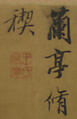 蘭亭脩
禊